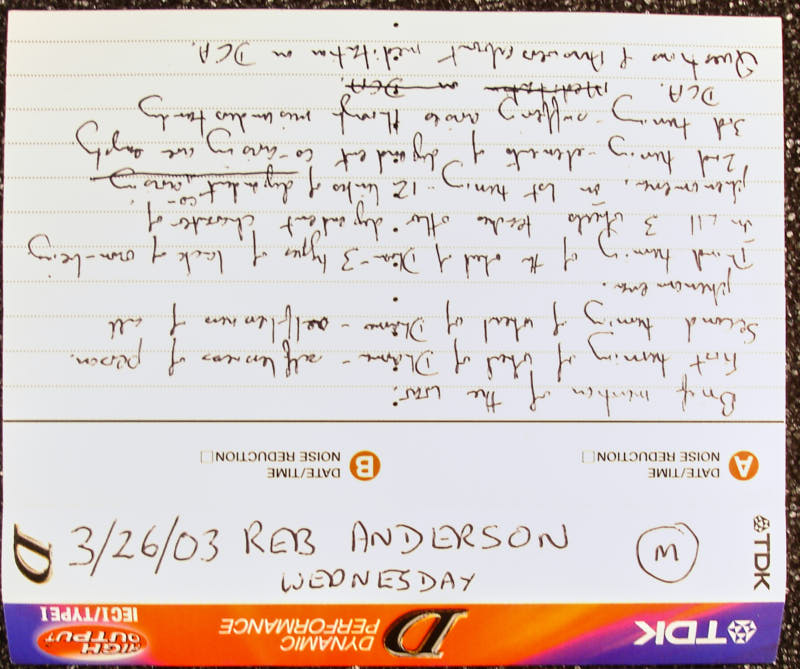 TDK
D DYNAMIC PERFORMANCE
HIGH OUTPUT
IECI/TYPE I
WEDNESDAY
3/26/03 REB ANDERSON
W
TDK
D
A DATE/TIME
NOISE REDUCTION
B DATE/TIME
NOISE REDUCTION
Brief mention of the war.
First turning of wheel of Dharma - selflessness of person.
Second turning of wheel of Dharma - selflessness of all
phenomena.
Third turning of the wheel of Dharma - 3 types of lack of own-being
in all 3 wheels teaches other-dependent character of
phenomena. on 1st turning - 12 links of dependent co-arising
2nd turning - elements of dependent co-arising are empty
3rd turning - suffering exists through misunderstanding
DCA. Meditation on DCA.
Questions & about meditation on DCA.